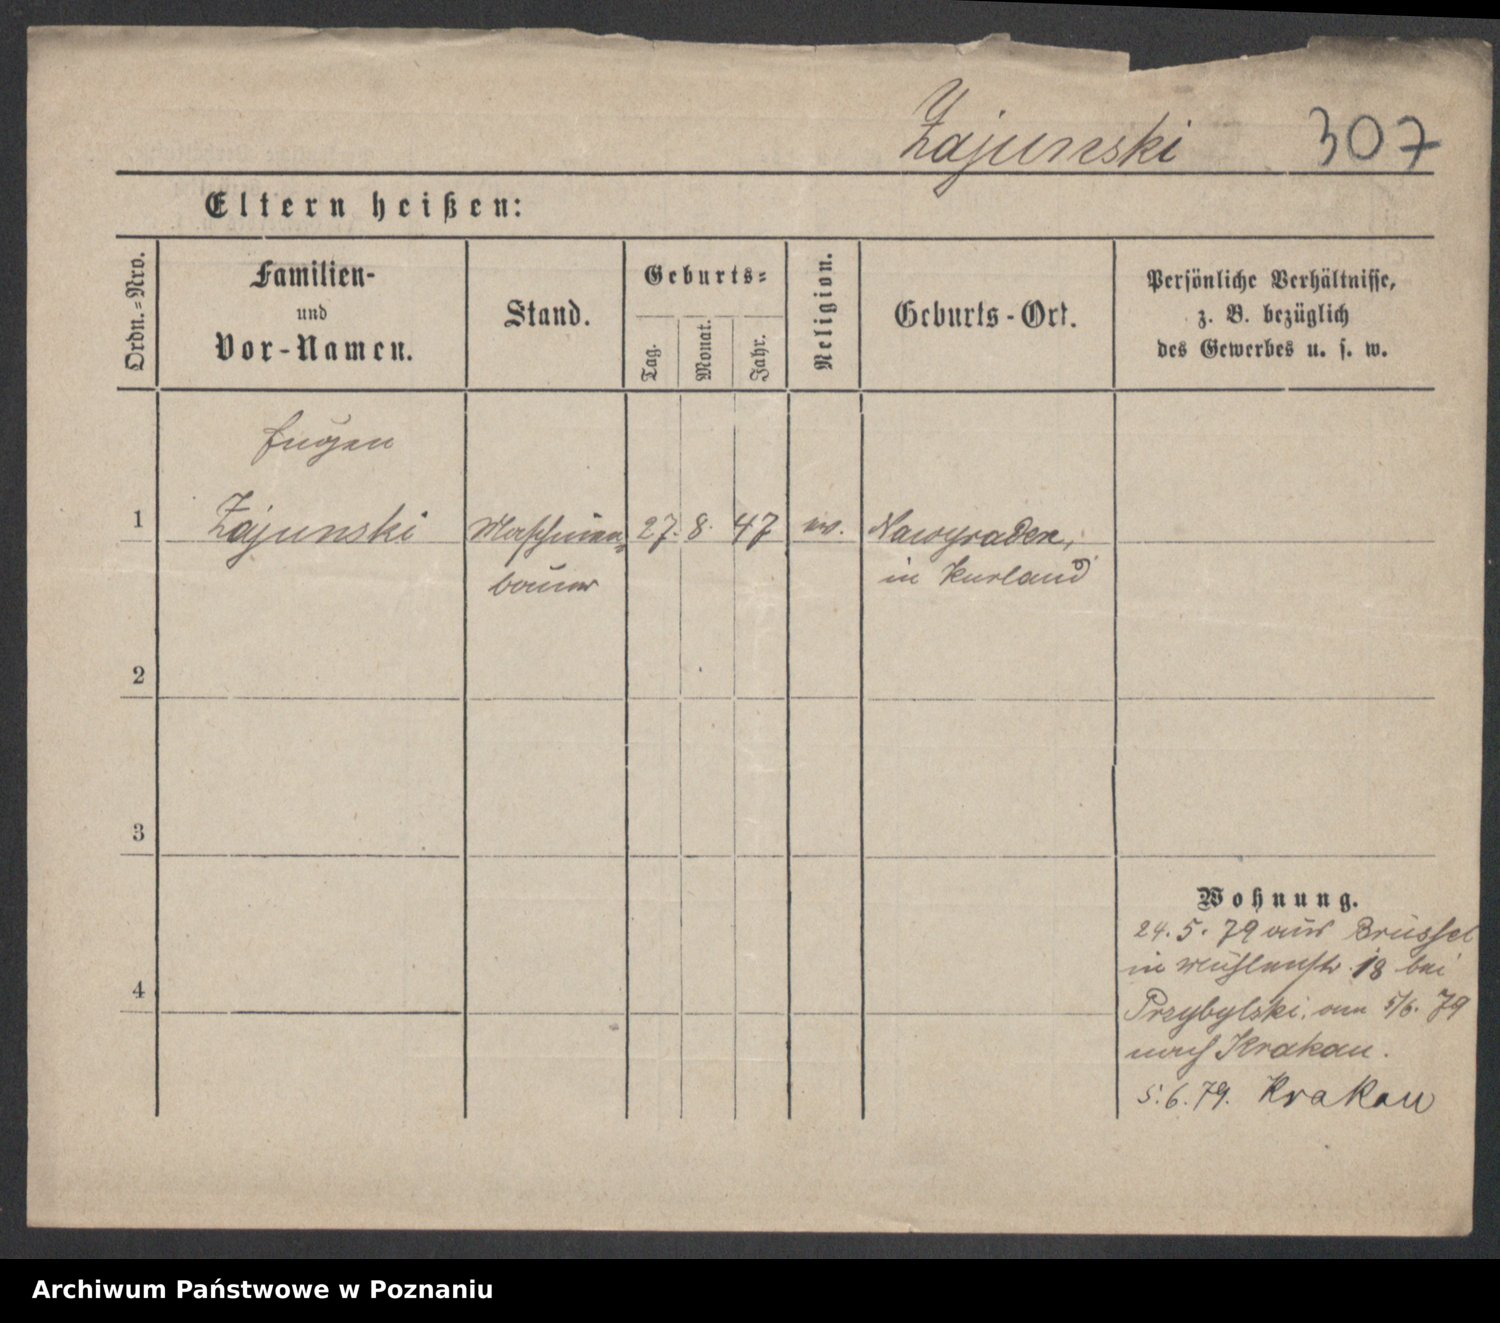 Zajunski 307
Eltern heißen:
Ordn.=Nro.
Familien-
und
Vor-Namen.
Stand.
Geburts=
Tag.
Monat.
Jahr.
Religion.
Geburts-Ort.
Persönliche Verhältnisse,
z. B. bezüglich
des Gewerbes u. s. w.
Eugen
1 Zajunski Maschinen= 27. 8. 47 in Kurland
bauer
2
3
4
Wohnung.
24. 5. 79 aus Brüssel
in Mühlenstr. 18 bei
Przybylski, am 5/6. 79
nach Krakau.
5. 6. 79. Krakau
Archiwum Państwowe w Poznaniu